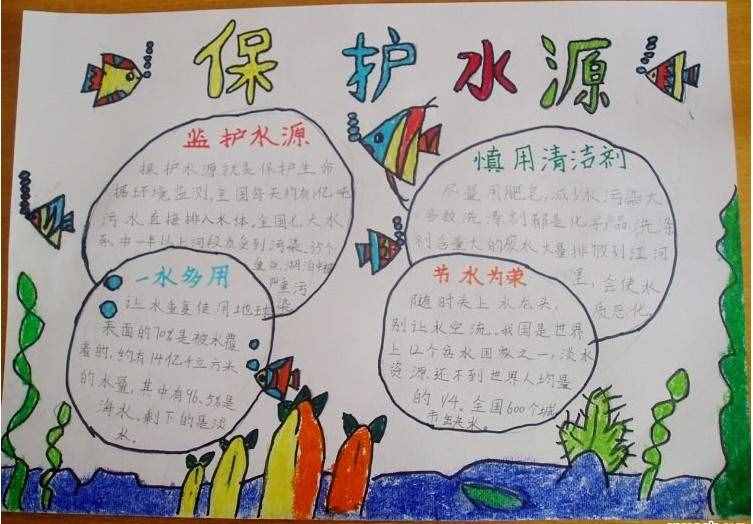 保护水源
监护水源
保护水源就是保护生命
据环境监测,全国每天约有1亿吨
污水直接排入水体。全国七大水
系中一半以上河段水质受到污染,35个
重点湖泊中
严重污
染
慎用清洁剂
尽量用肥皂,减少水污染大
多数洗涤剂都是化学产品,洗涤
剂含量大的废水大量排放到江河
里,会使水
质恶化。
一水多用
让水重复使用地球
表面的70%是被水覆
着的,约有14亿4立方米
的水量,其中有96.5%是
海水。剩下的是淡
水。
节水为荣
随时关上水龙头,
别让水空流。我国是世界
上12个贫水国家之一,淡水
资源还不到世界人均量
的1/4。全国600个城
市缺水。